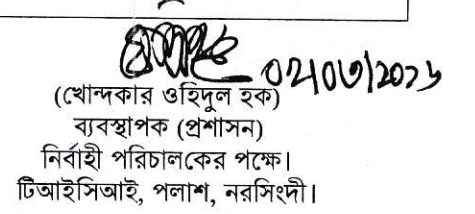 ০২/০৩/২০২৬
(খোন্দকার ওহিদুল হক)
ব্যবস্থাপক (প্রশাসন)
নির্বাহী পরিচালকের পক্ষে।
টিআইসিআই, পলাশ, নরসিংদী।